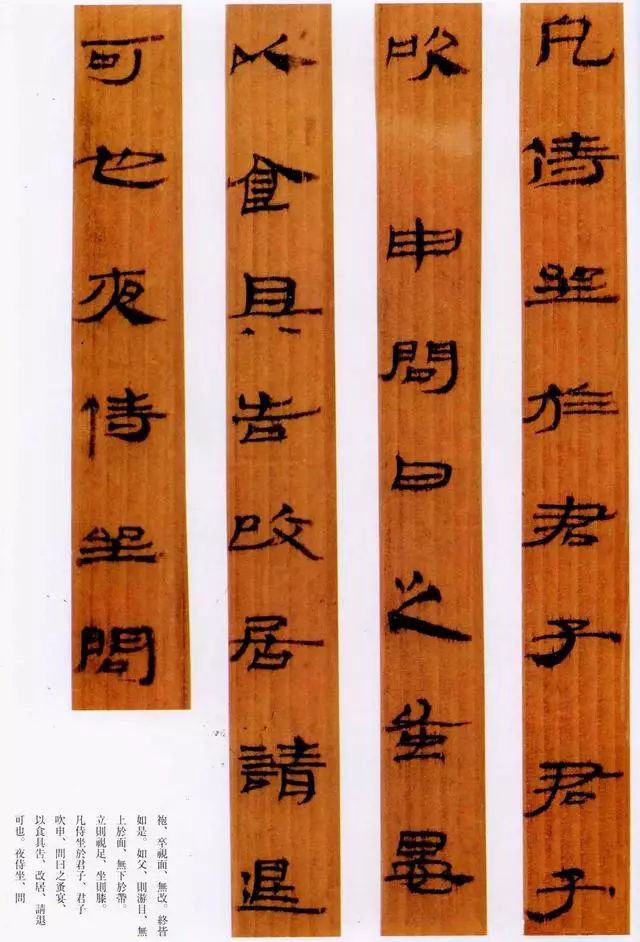 凡侍坐於君子君子
吹申問日之蚤晏
以食具告改居請退
可也夜侍坐問
袍、卒視面、無改。終皆
如是。如父、則游目、無
上於面、無下於帶。
立則視足、坐則膝。
凡侍坐於君子、君子
吹申、問日之蚤宴、
以食具告、改居、請退
可也。夜侍坐、問